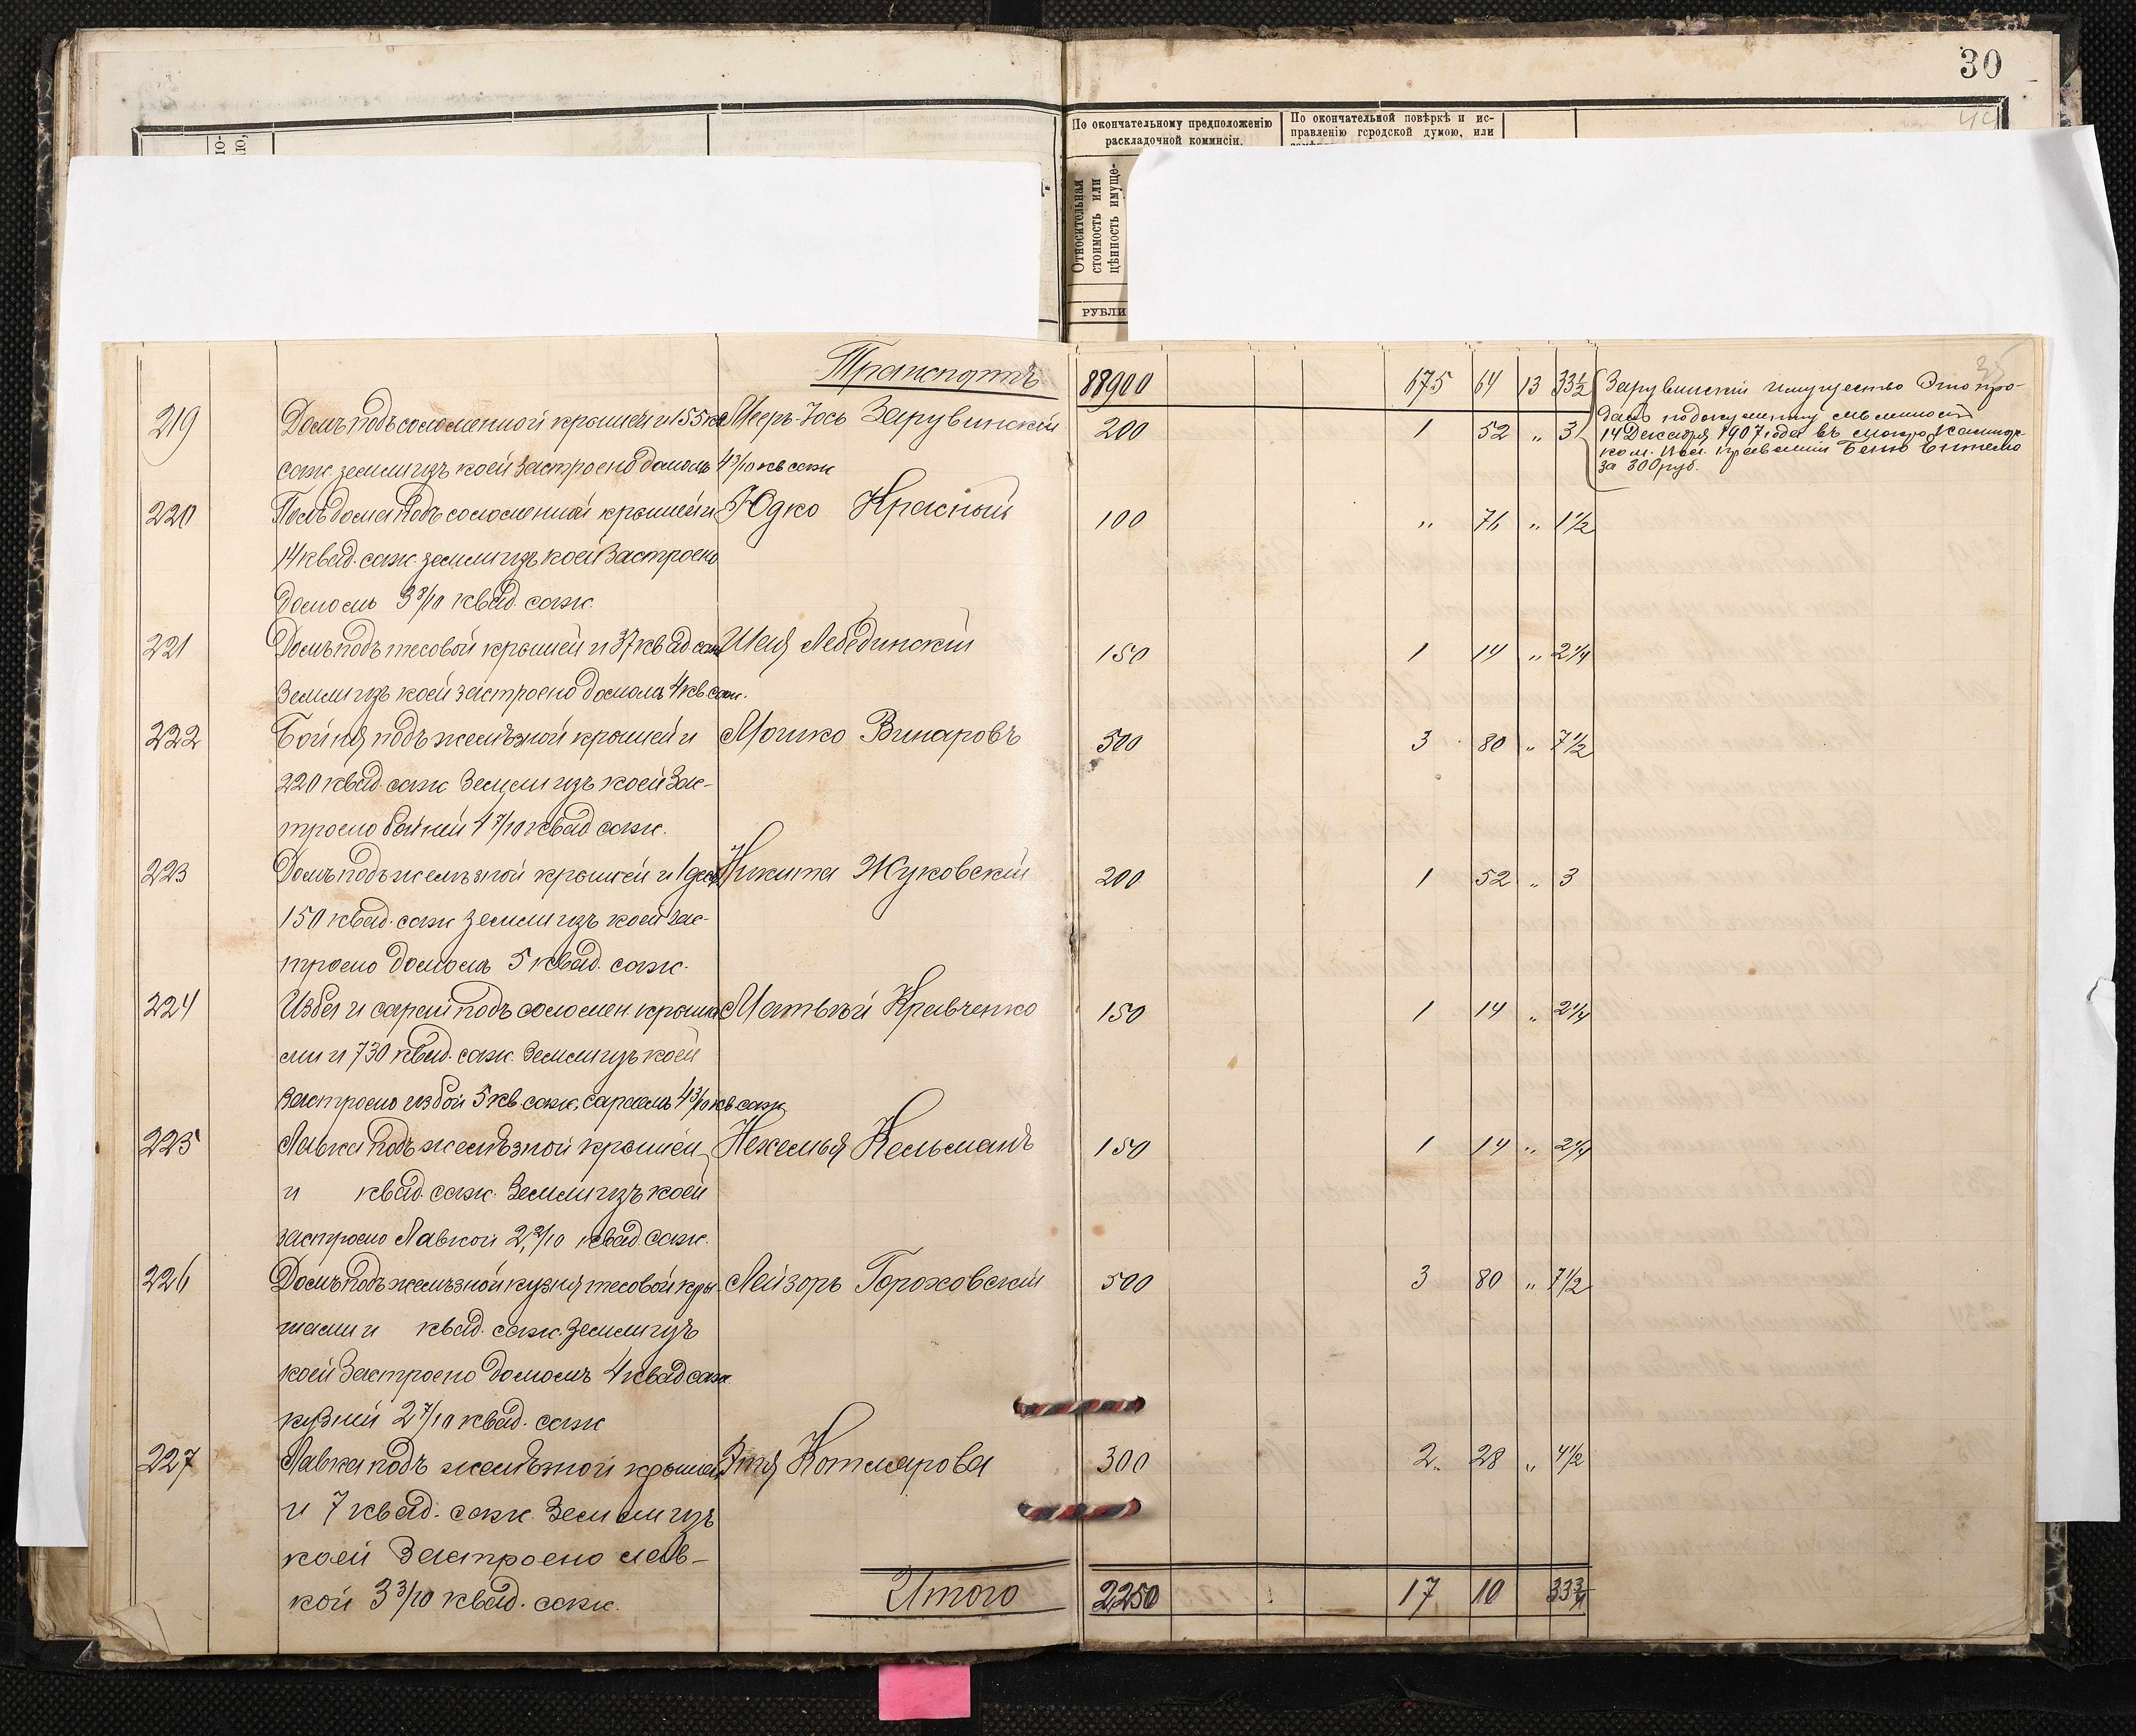 30
По окончательному предположенію
раскладочной коммисіи.
По окончательной повѣркѣ и ис-
правленію городской думою, или
Относительная
стоимость или
цѣнность имуще-
РУБЛИ
Транспортъ 88900 675 64 13 33½
219 Домъ подъ соломенной крышей и 155 кв Мееръ-Іось Зарувинскій 200 1 52 „ 3
саж. земли изъ коей застроено домомъ 4 3/10 кв саж
Зарувинскій имущество Это про-
далъ по документу
14 Декабря 1907 года въ
за 300 руб.
220 Полъ дома подъ соломенной крышей и Юдко Красный 100 „ 76 „ 1½
14 квад. саж. земли изъ коей застроено
домомъ 3 8/10 квад. саж.
221 Домъ подъ тесовой крышей и 37 квад саж Шая Лебединскій 150 1 14 „ 2¼
земли изъ коей застроено домомъ 4 кв саж.
222 Бойня подъ желѣзной крышей и Мошко Винаровъ 500 3 80 „ 7½
220 квад. саж земли изъ коей зас-
троено бойней 4 7/10 квад саж.
223 Домъ подъ желѣзной крышей и 1 дес Никита Жуковскій 200 1 52 „ 3
150 квад. саж земли изъ коей зас-
троено домомъ 5 квад. саж.
224 Изба и сарай подъ соломен. крыша Матвѣй Кравченко 150 1 14 „ 2¼
ми и 730 квад. саж. земли изъ коей
застроено избой 5 кв. саж, сараемъ 4 3/10 кв саж
225 Лавка подъ желѣзной крышей Нехемья Кельманъ 150 1 14 „ 2¼
и квад. саж. земли изъ коей
застроено лавкой 2, 2/10 квад саж.
226 Домъ подъ желѣзной кузня тесовой кры- Лейзоръ Гороховскій 500 3 80 „ 7½
шами и квад. саж. земли изъ
коей застроено домомъ 4 квад саж
кузней 2 7/10 квад. саж
227 Лавка подъ желѣзной крышей Этя Котлярова 300 2 28 „ 4½
и 7 квад. саж. земли изъ
коей застроено лав-
кой 3 3/10 квад. саж.
Итого 2250 17 10 33¾